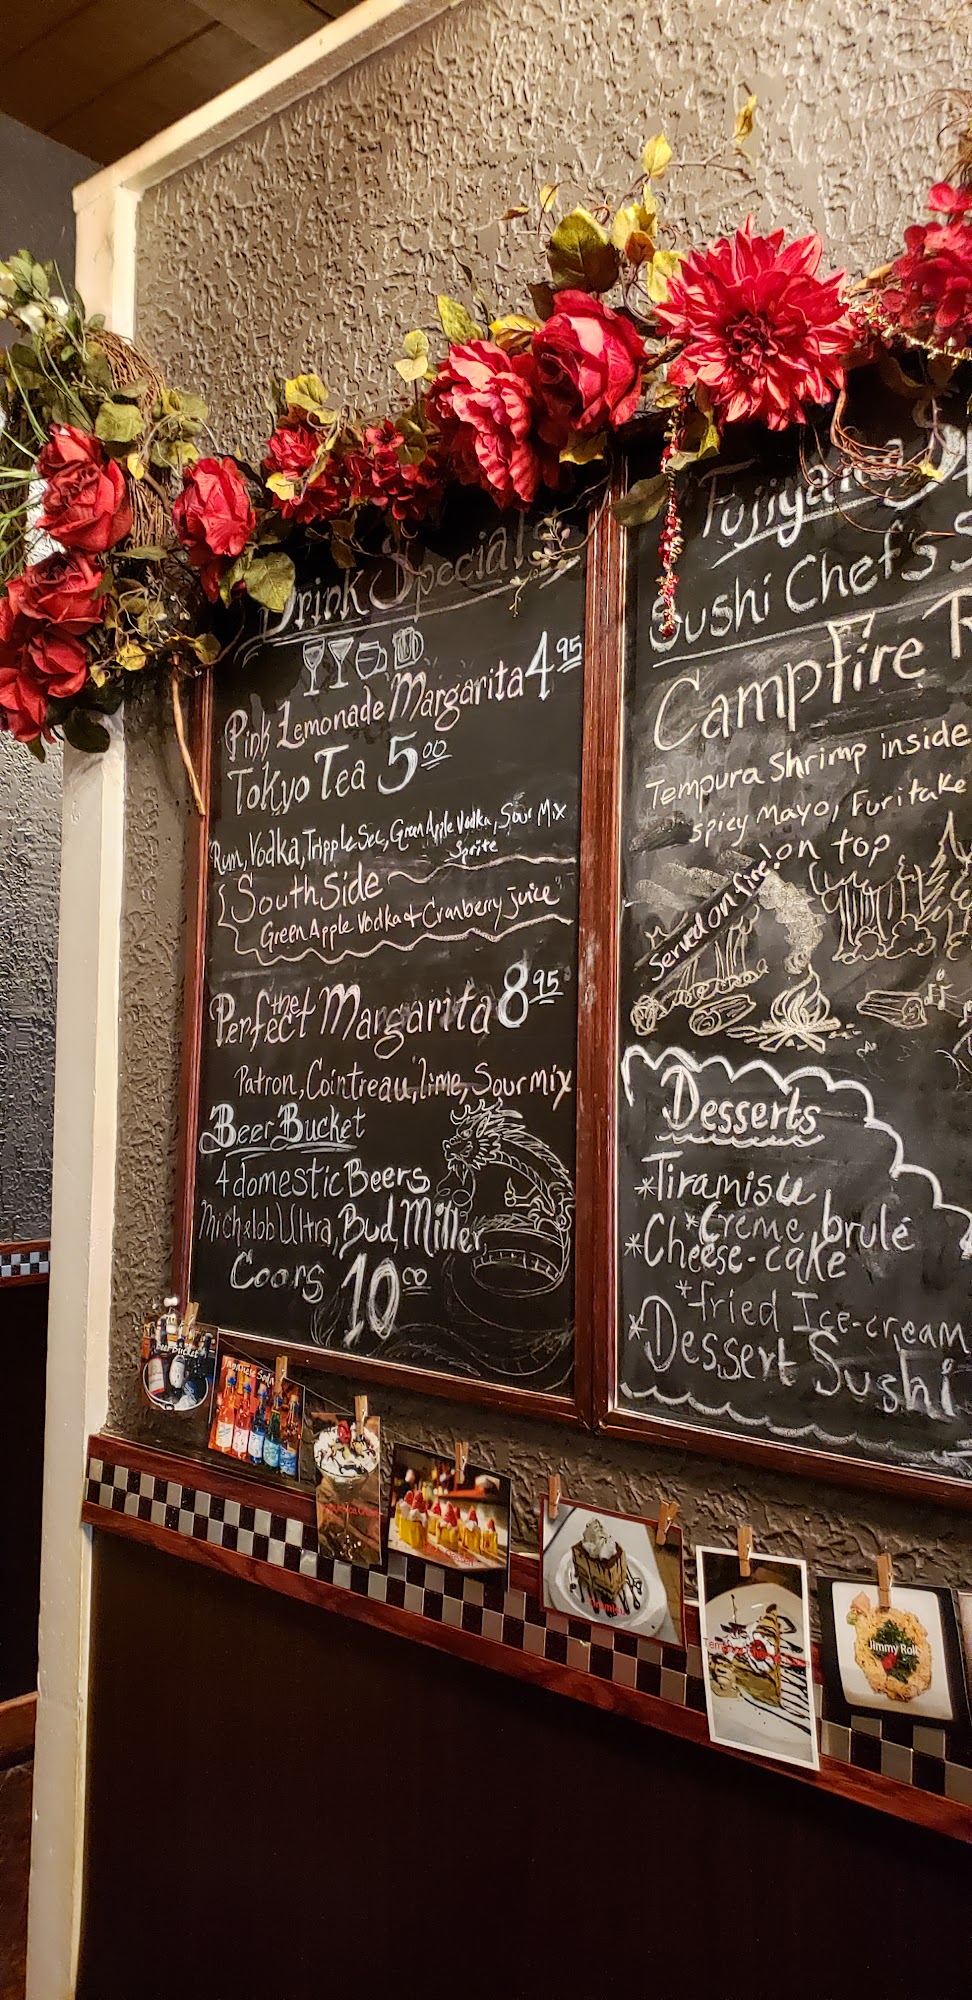 Drink Specials
Pink Lemonade Margarita 4.95
Tokyo Tea 5.00
Rum, Vodka, Tripple Sec, Green Apple Vodka, Sour Mix
Sprite
South Side
Green Apple Vodka & Cranberry juice
Perfect the Margarita 8.95
Patron, Cointreau, lime, Sour mix
Beer Bucket
4 domestic Beers
Michelob Ultra, Bud, Miller,
Coors 10.00
Sushi Chef's S
Campfire R
Tempura Shrimp inside
spicy Mayo, Furitake
on top
Served on fire!
Desserts
*Tiramisu
*Creme brulé
*Cheese-cake
*fried Ice-cream
*Dessert Sushi
Beer Bucket
Japanese Soda
Jimmy Roll